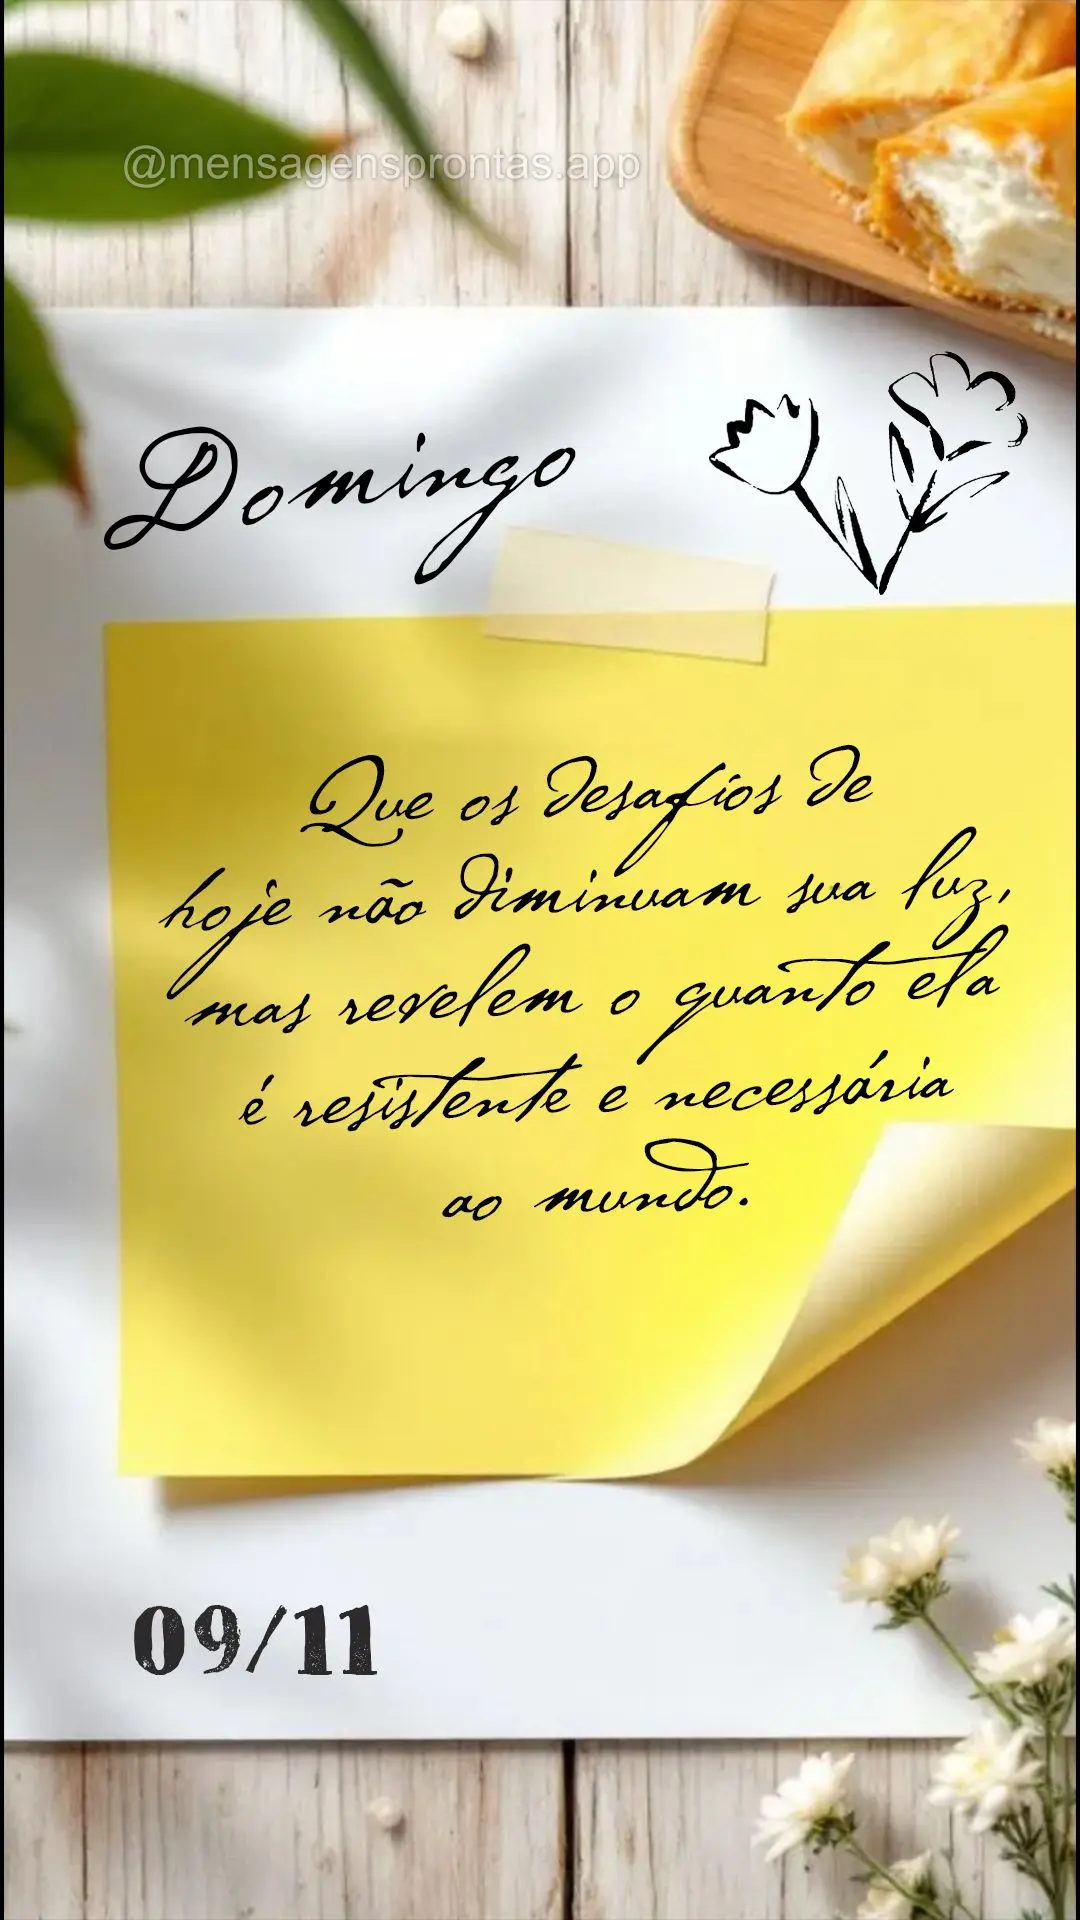 @mensagensprontas.app
Domingo
Que os desafios de
hoje não diminuam sua luz,
mas revelem o quanto ela
é resistente e necessária
ao mundo.
09/11